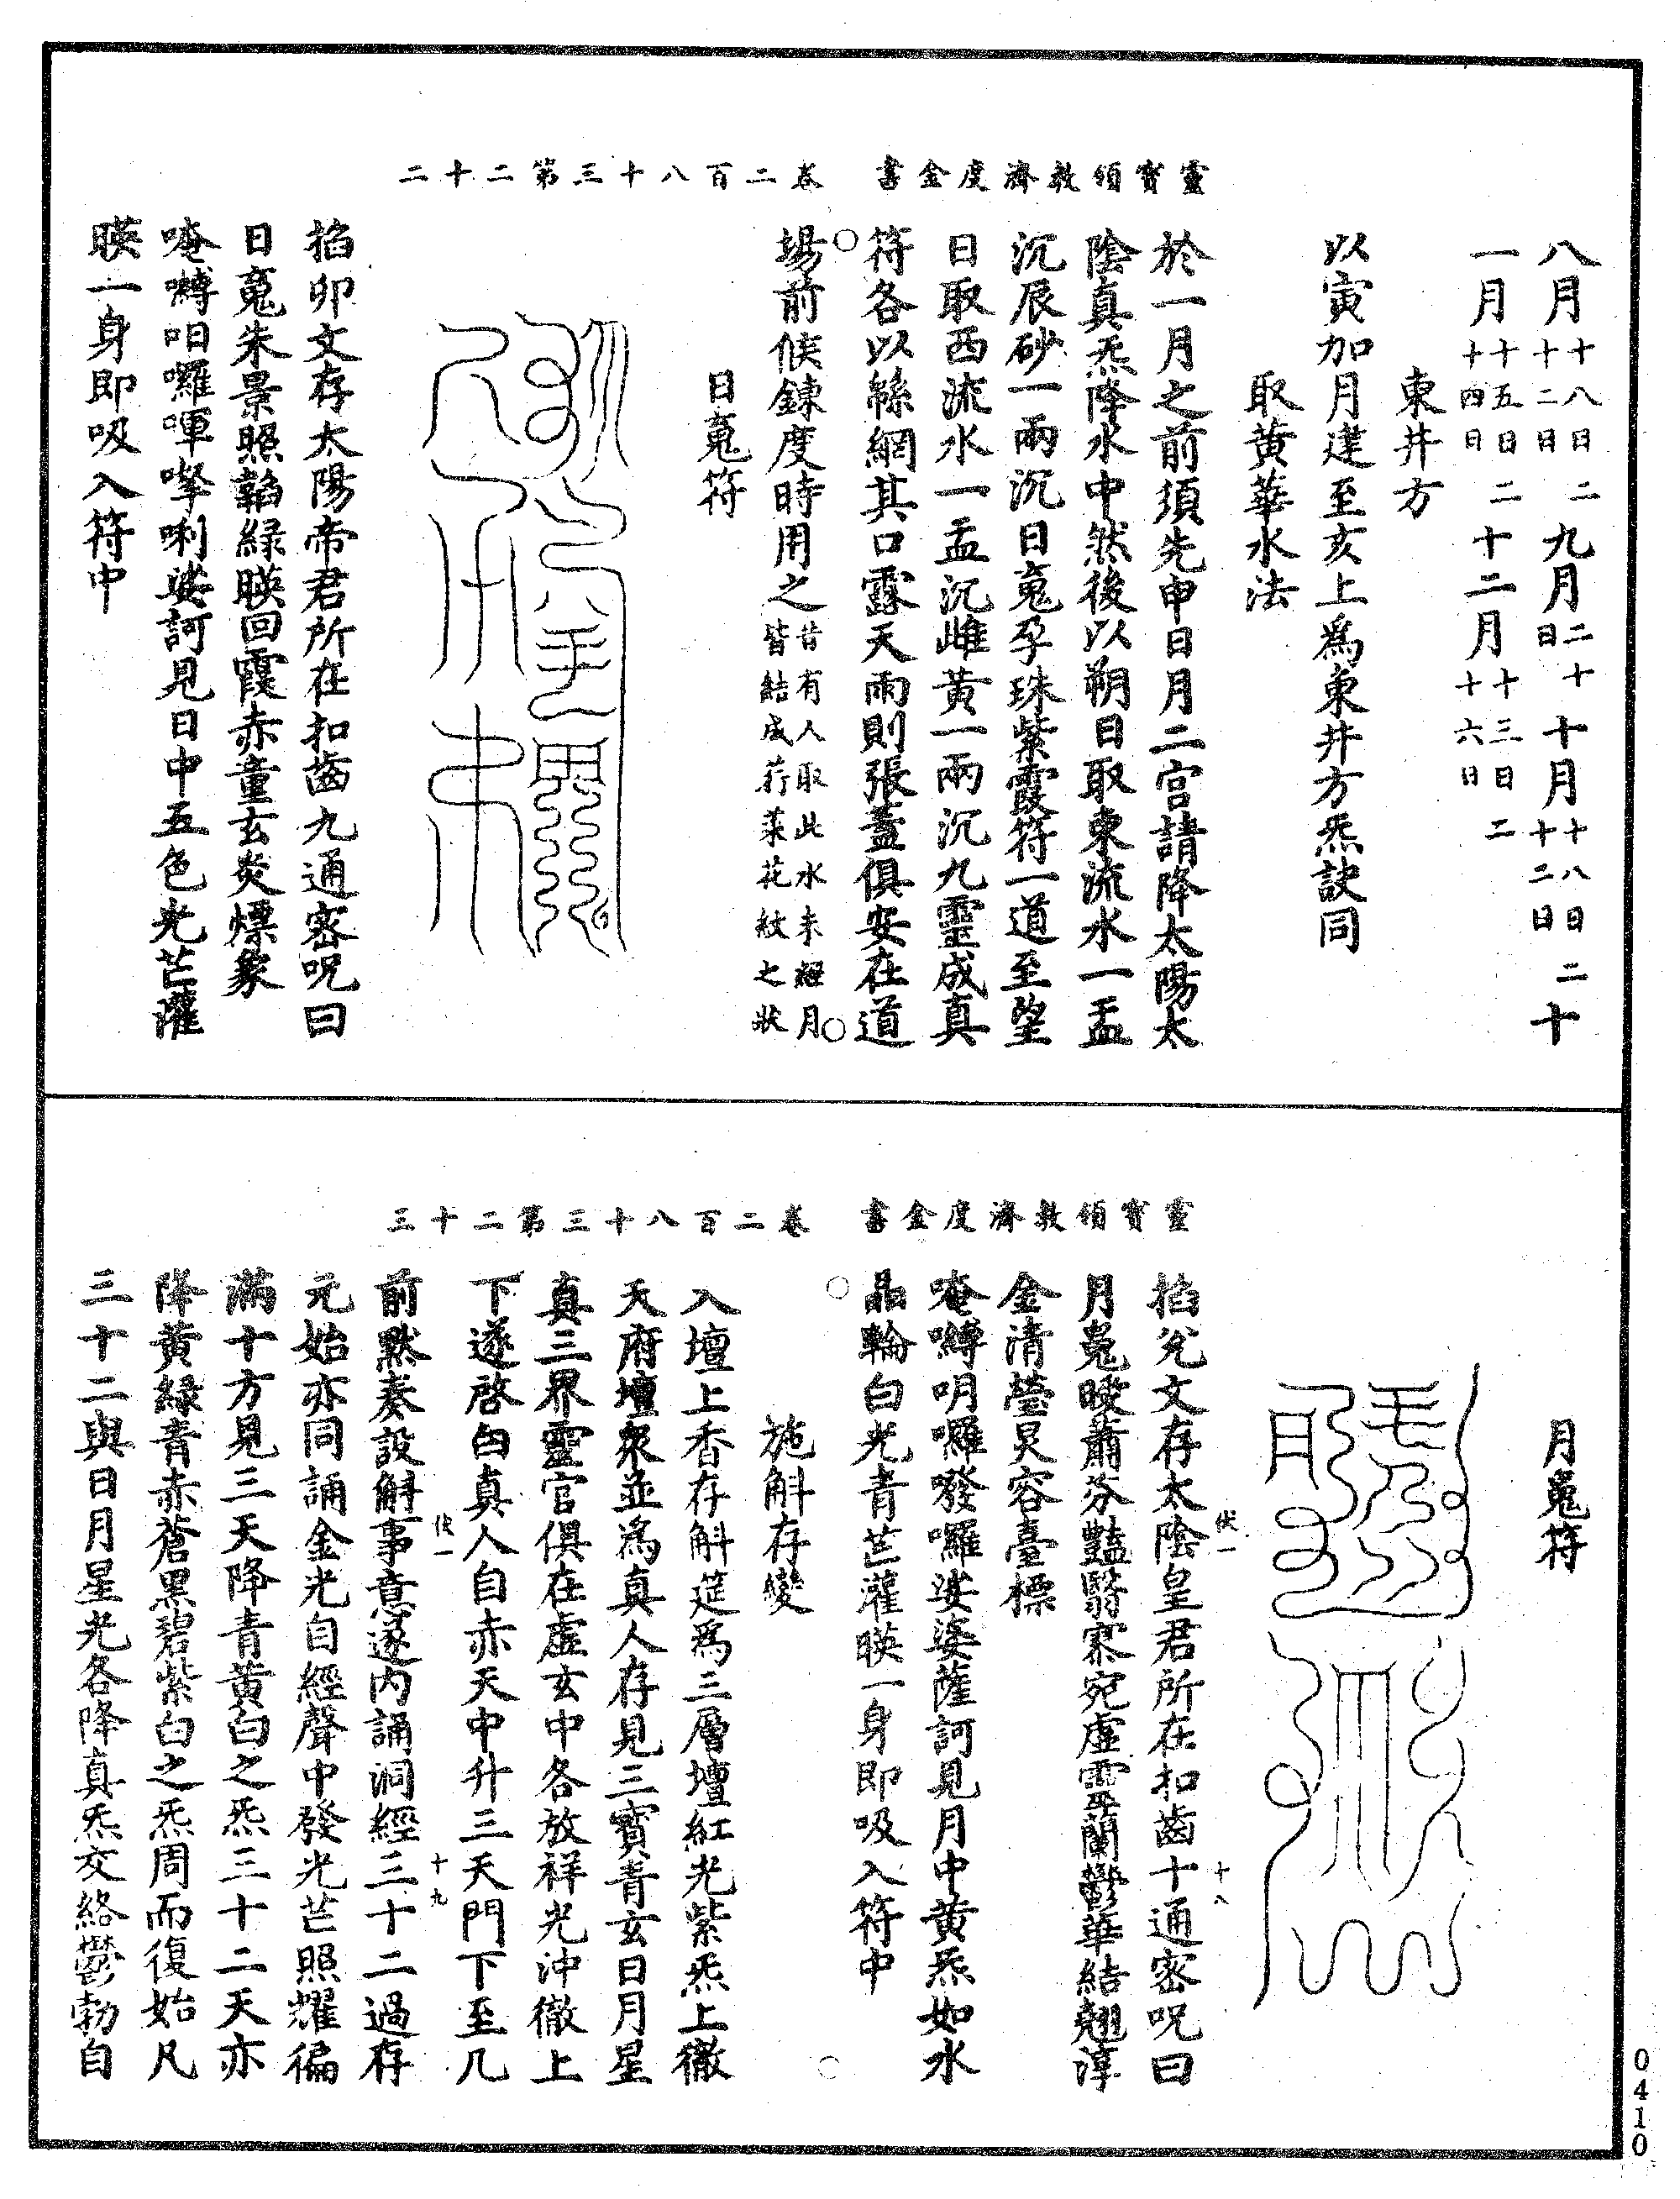 靈寶領教濟度金書　卷二百八十三第二十二
八月十八日二十二日九月二十日十月十八日二十二日十
一月十五日二十四日十二月十三日二十六日
東井方
以寅加月建至亥上爲東井方炁訣同
取黃華水法
於一月之前須先申日月二宮請降太陽太
陰真炁降水中然後以朔日取東流水一盂
沉辰砂一兩沉日䰟孕珠紫霞符一道至望
日取西流水一盂沉雌黃一兩沉九靈成真
符各以絲網其口露天雨則張蓋俱安在道
場前候鍊度時用之昔有人取此水未經月皆結成荇菜花紋之狀
日䰟符
掐卯文存太陽帝君所在扣齒九通密呪曰
日䰟朱景照韜綠暎回霞赤童玄炎熛象
唵嚩㖆囉㖇㗚唎娑訶見日中五色光芒灌
暎一身即吸入符中
靈寶領教濟度金書　卷二百八十三第二十三
月䰟符
掐兊文存太陰皇君所在扣齒十通密呪曰
月䰟曖蕭芬豔翳寥宛虛靈蘭鬱華結翹淳
金清瑩炅容臺標
唵嚩明囉㗶囉娑婆薩訶見月中黃炁如水
晶輪白光青芒灌暎一身即吸入符中
施斛存變
入壇上香存斛筵爲三層壇紅光紫炁上徹
天府壇衆並爲真人存見三寶青玄日月星
真三界靈官俱在虛玄中各放祥光沖徹上
下遂啓白真人自赤天中升三天門下至几
前默奏設斛事意遂內誦洞經三十二過存
元始亦同誦金光自經聲中發光芒照耀徧
滿十方見三天降青黃白之炁三十二天亦
降黃綠青赤蒼黑碧紫白之炁周而復始凡
三十二與日月星光各降真炁交絡鬱勃自
伏一
十八
伏一
十九
0410